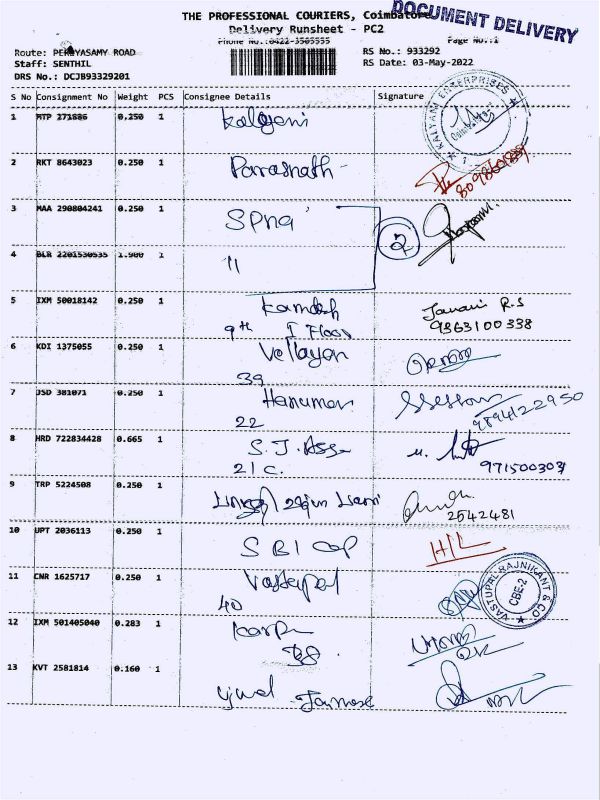 THE PROFESSIONAL COURIERS, Coimbatore
DOCUMENT DELIVERY
Delivery Runsheet - PC2
Phone No.:0422-3505555 Page No.:1
Route: PERIYASAMY ROAD RS No.: 933292
Staff: SENTHIL RS Date: 03-May-2022
DRS No.: DCJB93329201
S No Consignment No Weight PCS Consignee Details Signature
KALYANI ENTERPRISES
Coimbatore-
1 MTP 271886 0.250 1 Kalyani
2 RKT 8643023 0.250 1 Parasnath
3 MAA 290804241 0.250 1 Spna
2
4 BLR 2201530535 1.900 1 11
5 IXM 50018142 0.250 1 Kamdesh Janani R.S
9th I Floor 9863100338
6 KDI 1375055 0.250 1 Vellayan
39
7 JSD 381071 0.250 1 Hanuman
22 9894122950
8 HRD 722834428 0.665 1 S.J. Asso
21 C. 971500303
9 TRP 5224508 0.250 1
2542481
10 UPT 2036113 0.250 1 SBI Cap HIL
11 CNR 1625717 0.250 1 Vastupal
40
VASTUPAL RAJNIKANT & CO
CBE-2
12 IXM 501405040 0.283 1 Karpa
38
13 KVT 2581814 0.160 1 Ujwal